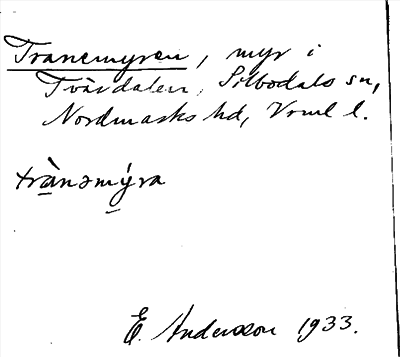 Tranemyren, myr i
Tvärdalen, Silbodals sn,
Nordmarks hd, Vrml l.
trànəmýra
E. Andersson 1933.